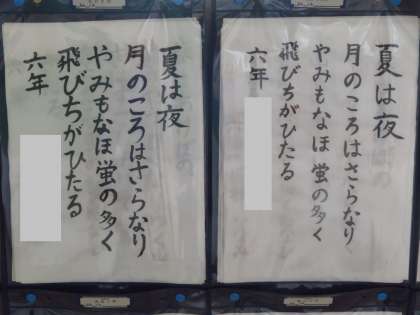 夏は夜
月のころはさらなり
やみもなほ蛍の多く
飛びちがひたる
六年
夏は夜
月のころはさらなり
やみもなほ蛍の多く
飛びちがひたる
六年